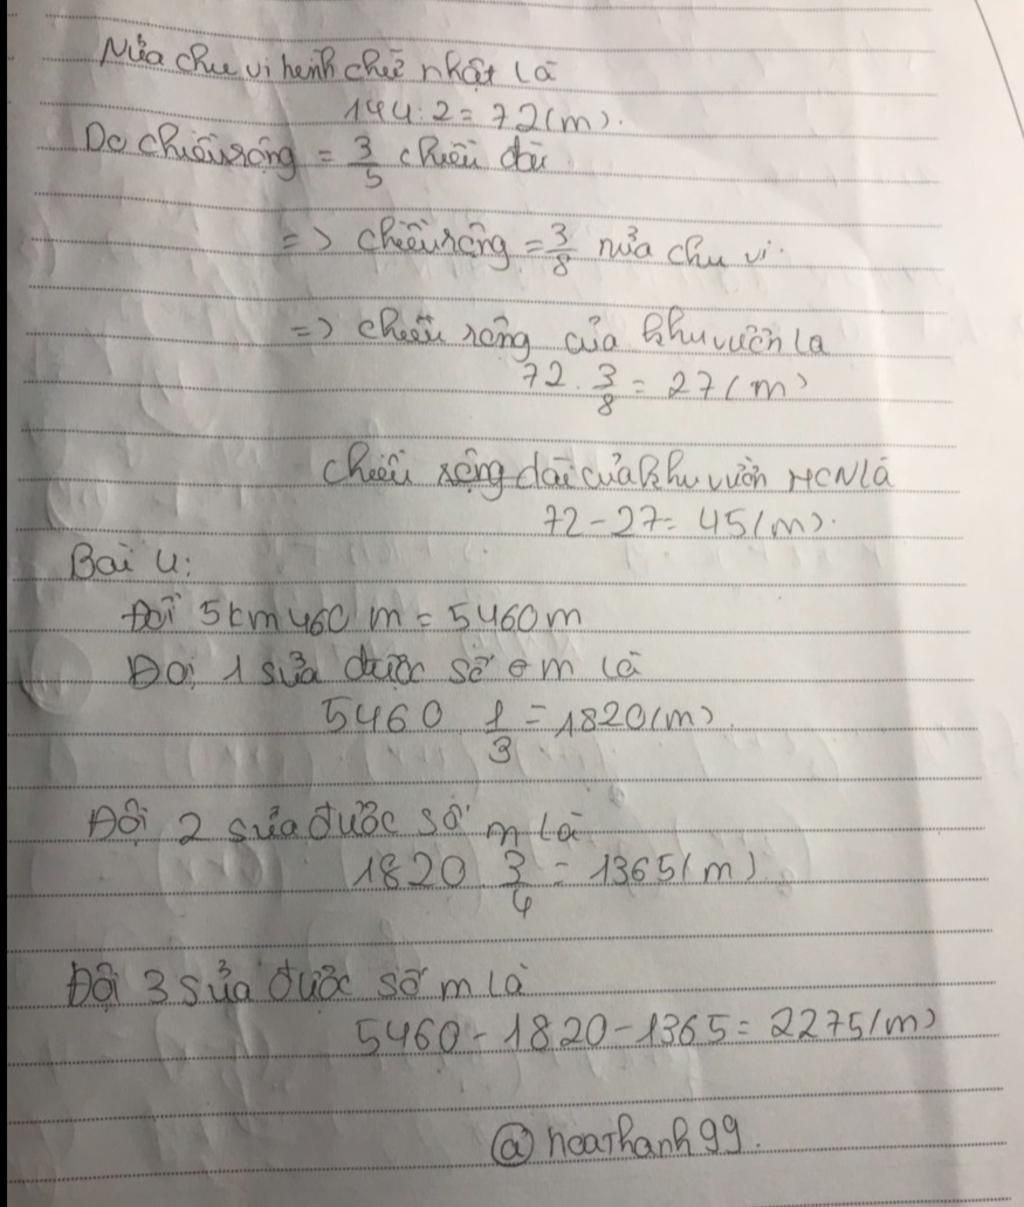 Nửa chu vi hình chữ nhật là
144:2=72(m).
Do chiều rộng = 3/5 chiều dài
=> chiều rộng = 3/8 nửa chu vi.
=> chiều rộng của khu vườn la
72.3/8=27(m)
chiều rộng dài của khu vườn HCN là
72-27=45(m).
Bài 4:
Đổi 5km460m=5460m
Đội 1 sửa được số m là
5460 1/3=1820(m).
Đội 2 sửa được số m là
1820.3/4=1365(m)
Đội 3 sửa được số m là
5460-1820-1365=2275(m)
@hoaThanh99.